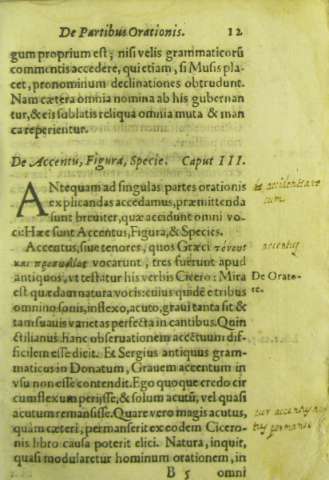 De Partibus Orationis. 12
gum proprium est, nisi velis grammaticorū
commentis accedere, qui etiam, si Musis pla-
cet, pronominum declinationes obtrudunt.
Nam cætera omnia nomina ab his gubernan
tur, & eis sublatis reliqua omnia muta & man
ca reperientur.
De Accentu, Figura, Specie. Caput III.
ANtequam ad singulas partes orationis
explicandas accedamus, præmittenda
sunt breuiter, quæ accidunt omni vo-
ci: Hæc sunt Accentus, Figura, & Species.
Accentus, siue tenores, quos Græci τόνους
και προσωδίας vocarunt, tres fuerunt apud
antiquos, vt testatur his verbis Cicero: Mira
est quædam natura vocis: cuius quidē e tribus
omnino sonis, inflexo, acuto, graui tanta sit &
tam suauis varietas perfecta in cantibus. Quin
ctilianus hanc obseruationem accētuum dif-
ficilem esse dicit. Et Sergius antiquus gram-
maticus in Donatum, Grauem accentum in
vsu non esse contendit. Ego quoque credo cir
cumflexum perijsse, & solum acutū, vel quasi
acutum remansisse. Quare vero magis acutus,
quàm cæteri, permanserit ex eodem Cicero-
nis libro causa poterit elici. Natura, inquit,
quasi modularetur hominum orationem, in
B 5 omni
accentus
De Orato-
re.
cur accentus